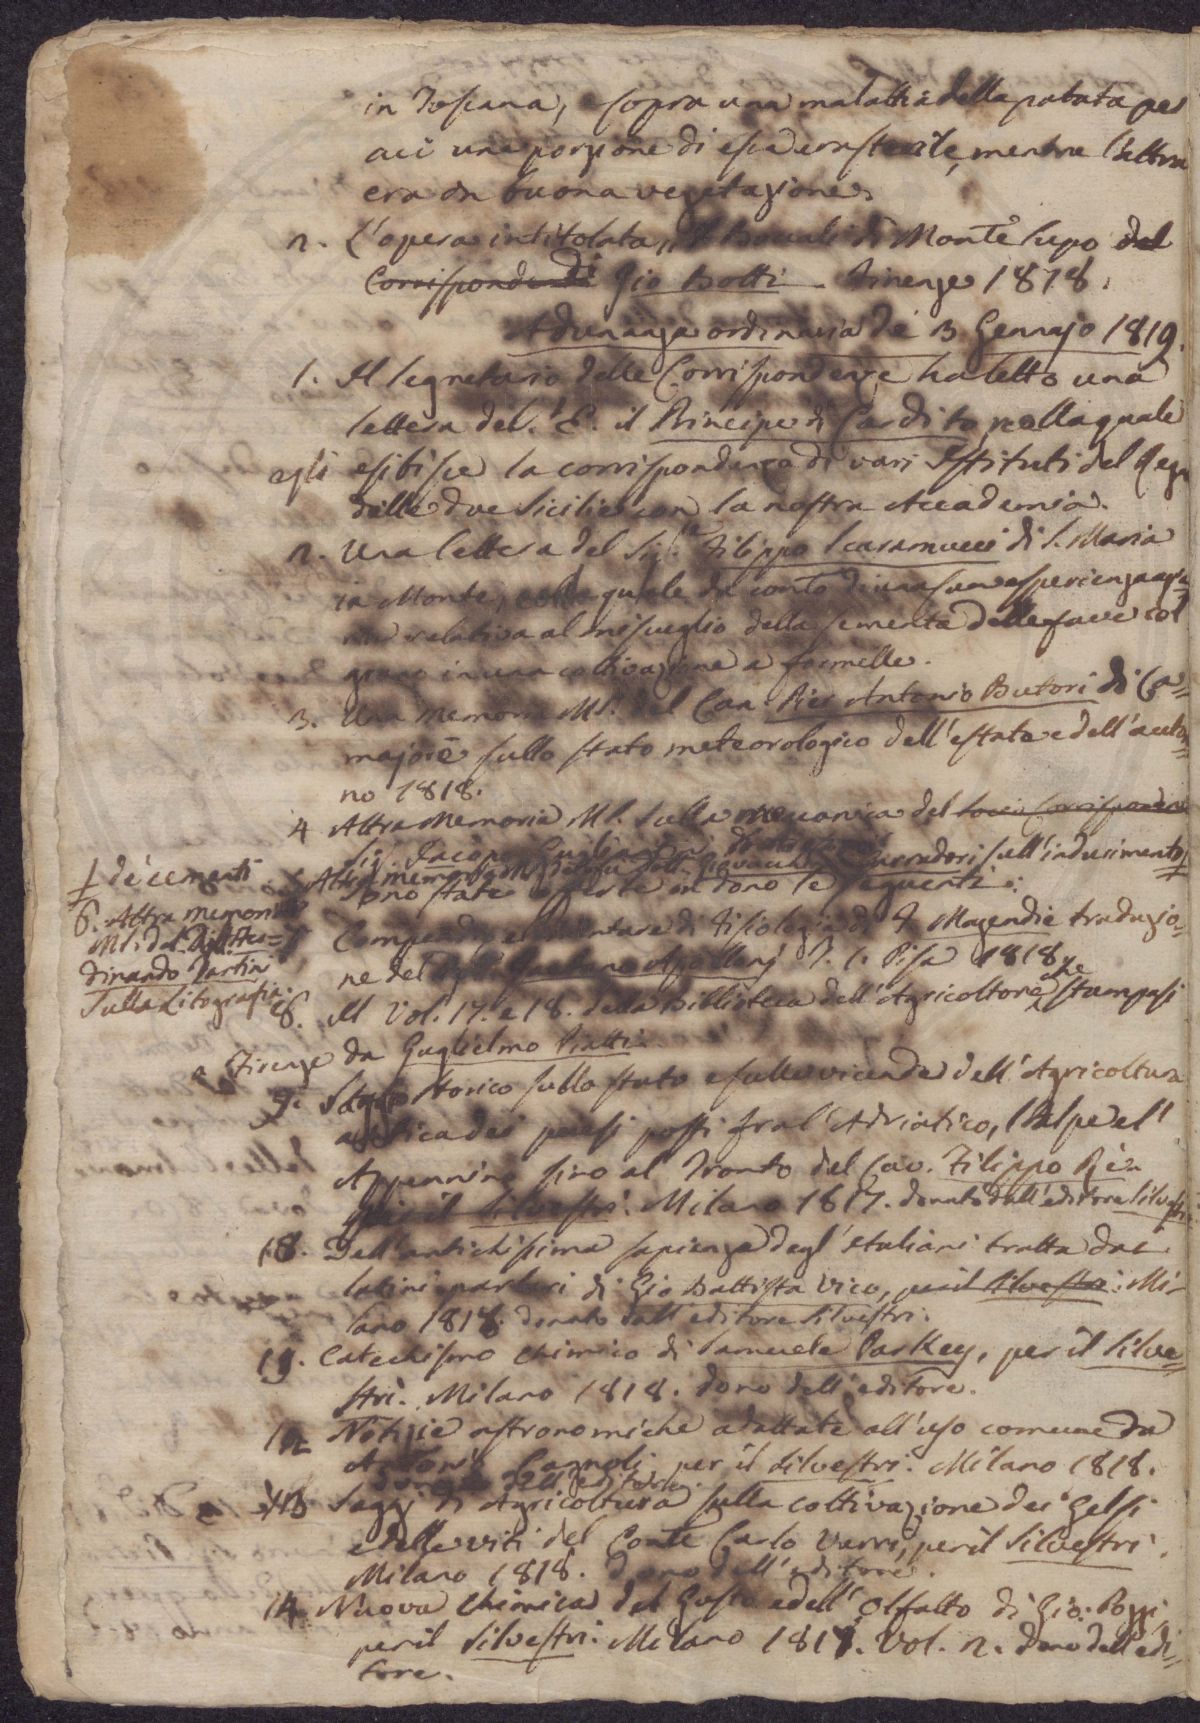 in Toscana, e sopra una malattia della patata per
cui una porzione di essa era sterile, mentre l'altra
era in buona vegetazione.
2. L'opera intitolata, I Boccali di Monte lupo del
Corrispondente Gio Botti. Firenze 1818.
Adunanza ordinaria de' 3 Gennajo 1819.
1. Il Segretario delle Corrispondenze ha letto una
lettera del. S. E. il Principe di Cardito, nella quale
egli esibisce la corrispondenza di vari Istituti del Reg
delle due Sicilie con la nostra Accademia.
2. Una lettera del Sig. Filippo Scaramucci di S. Maria
in Monte, colla quale dà conto di una sua esperienza
relativa al miscuglio della sementa delle fave col
grano in una coltivazione a formelle.
3. Una memoria MS. del Can. Pier Antonio Butori di Ca=
majore sullo stato meteorologico dell'estate e dell'autu=
no 1818.
4 Altra Memoria MS. sulla meccanica del socio Corrisponden
Sig. Iacopo
5. Altra memoria MS. del Sig. Dott. Giovacchino Carradori sull'indurimento
de' cementi
6. Altra memoria
MS. del Sig. Fer=
dinando Tartini
sulla Litografia.
Sono state offerte in dono le seguenti:
7 Compendio elementare di Fisiologia di F. Magendie traduzio=
ne del Dott. Gaetano T. 1. Pisa 1818
8. Il Vol. 17. e 18. della Biblioteca dell'Agricoltore che stampasi
a Firenze da Guglielmo Piatti.
9. Saggio Storico sullo stato e sulle vicende dell'Agricoltura
antica dei paesi posti fra l'Adriatico, l'Alpe e l'
Appennino sino al Tronto del Cav. Filippo Re.
per il Silvestri. Milano 1817. donato dall'editore Silvestri.
10. Dell'antichissima sapienza degl'Italiani tratta da
latini parlari di Gio Battista Vico, per il Silvestri. Mi=
lano 1818. donato dall'editore Silvestri.
11. Catechismo chimico di Samuele Parkey, per il Silve=
stri. Milano 1818. dono dell'editore.
12 Notizie astronomiche adattate all'uso comune da
Antonio Cagnoli per il Silvestri. Milano 1818.
dono dell'editore.
13 Saggi di Agricoltura sulla coltivazione dei Gelsi
e delle viti del Conte Carlo Verri, per il Silvestri.
Milano 1818. dono dell'editore.
14. Nuova chimica del Gusto e dell'Olfatto di Gio. Pozzi,
per il Silvestri. Milano 181. Vol. 2. dono dell'edi=
tore.